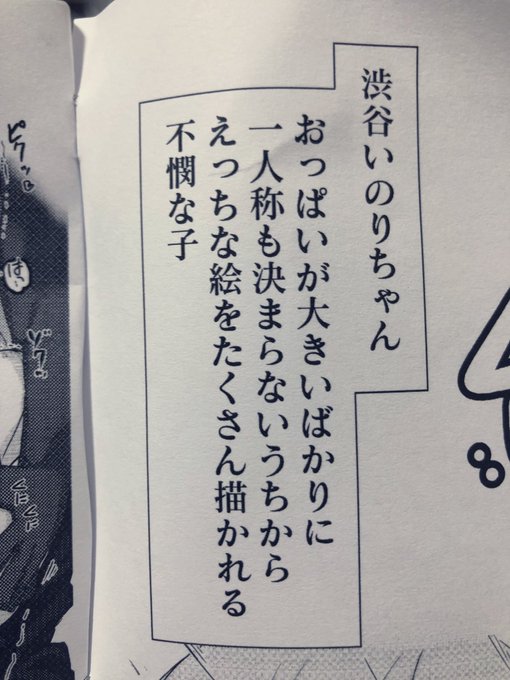 渋谷いのりちゃん
おっぱいが大きいばかりに
一人称も決まらないうちから
えっちな絵をたくさん描かれる
不憫な子
ピクッ
はっ
ゾクッ
8